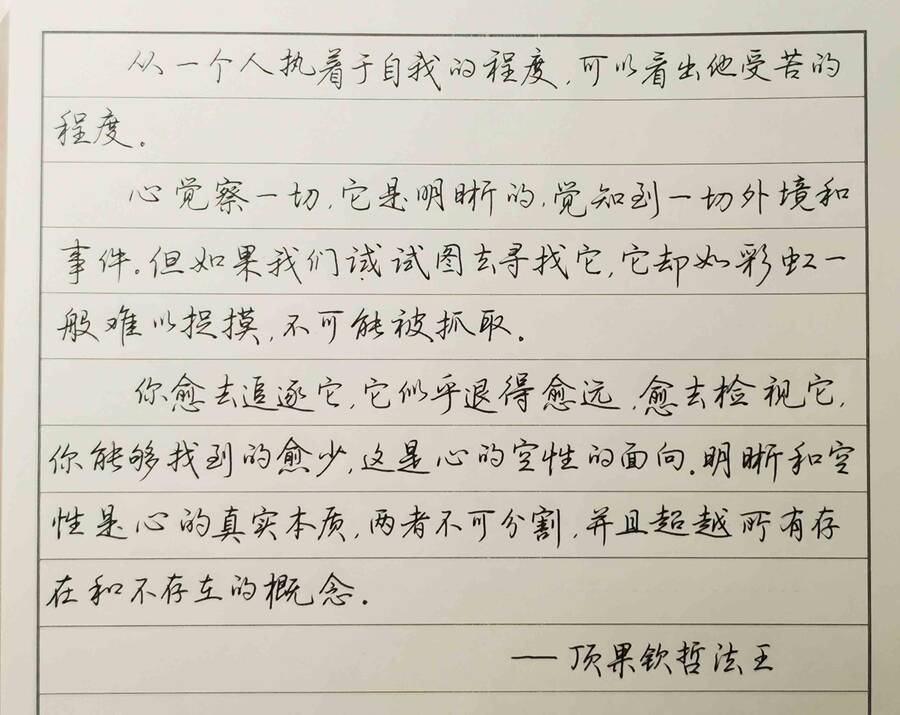 从一个人执着于自我的程度,可以看出他受苦的
程度。
心觉察一切,它是明晰的,觉知到一切外境和
事件。但如果我们试试图去寻找它,它却如彩虹一
般难以捉摸,不可能被抓取。
你愈去追逐它,它似乎退得愈远,愈去检视它,
你能够找到的愈少,这是心的空性的面向。明晰和空
性是心的真实本质,两者不可分割,并且超越所有存
在和不存在的概念。
——顶果钦哲法王